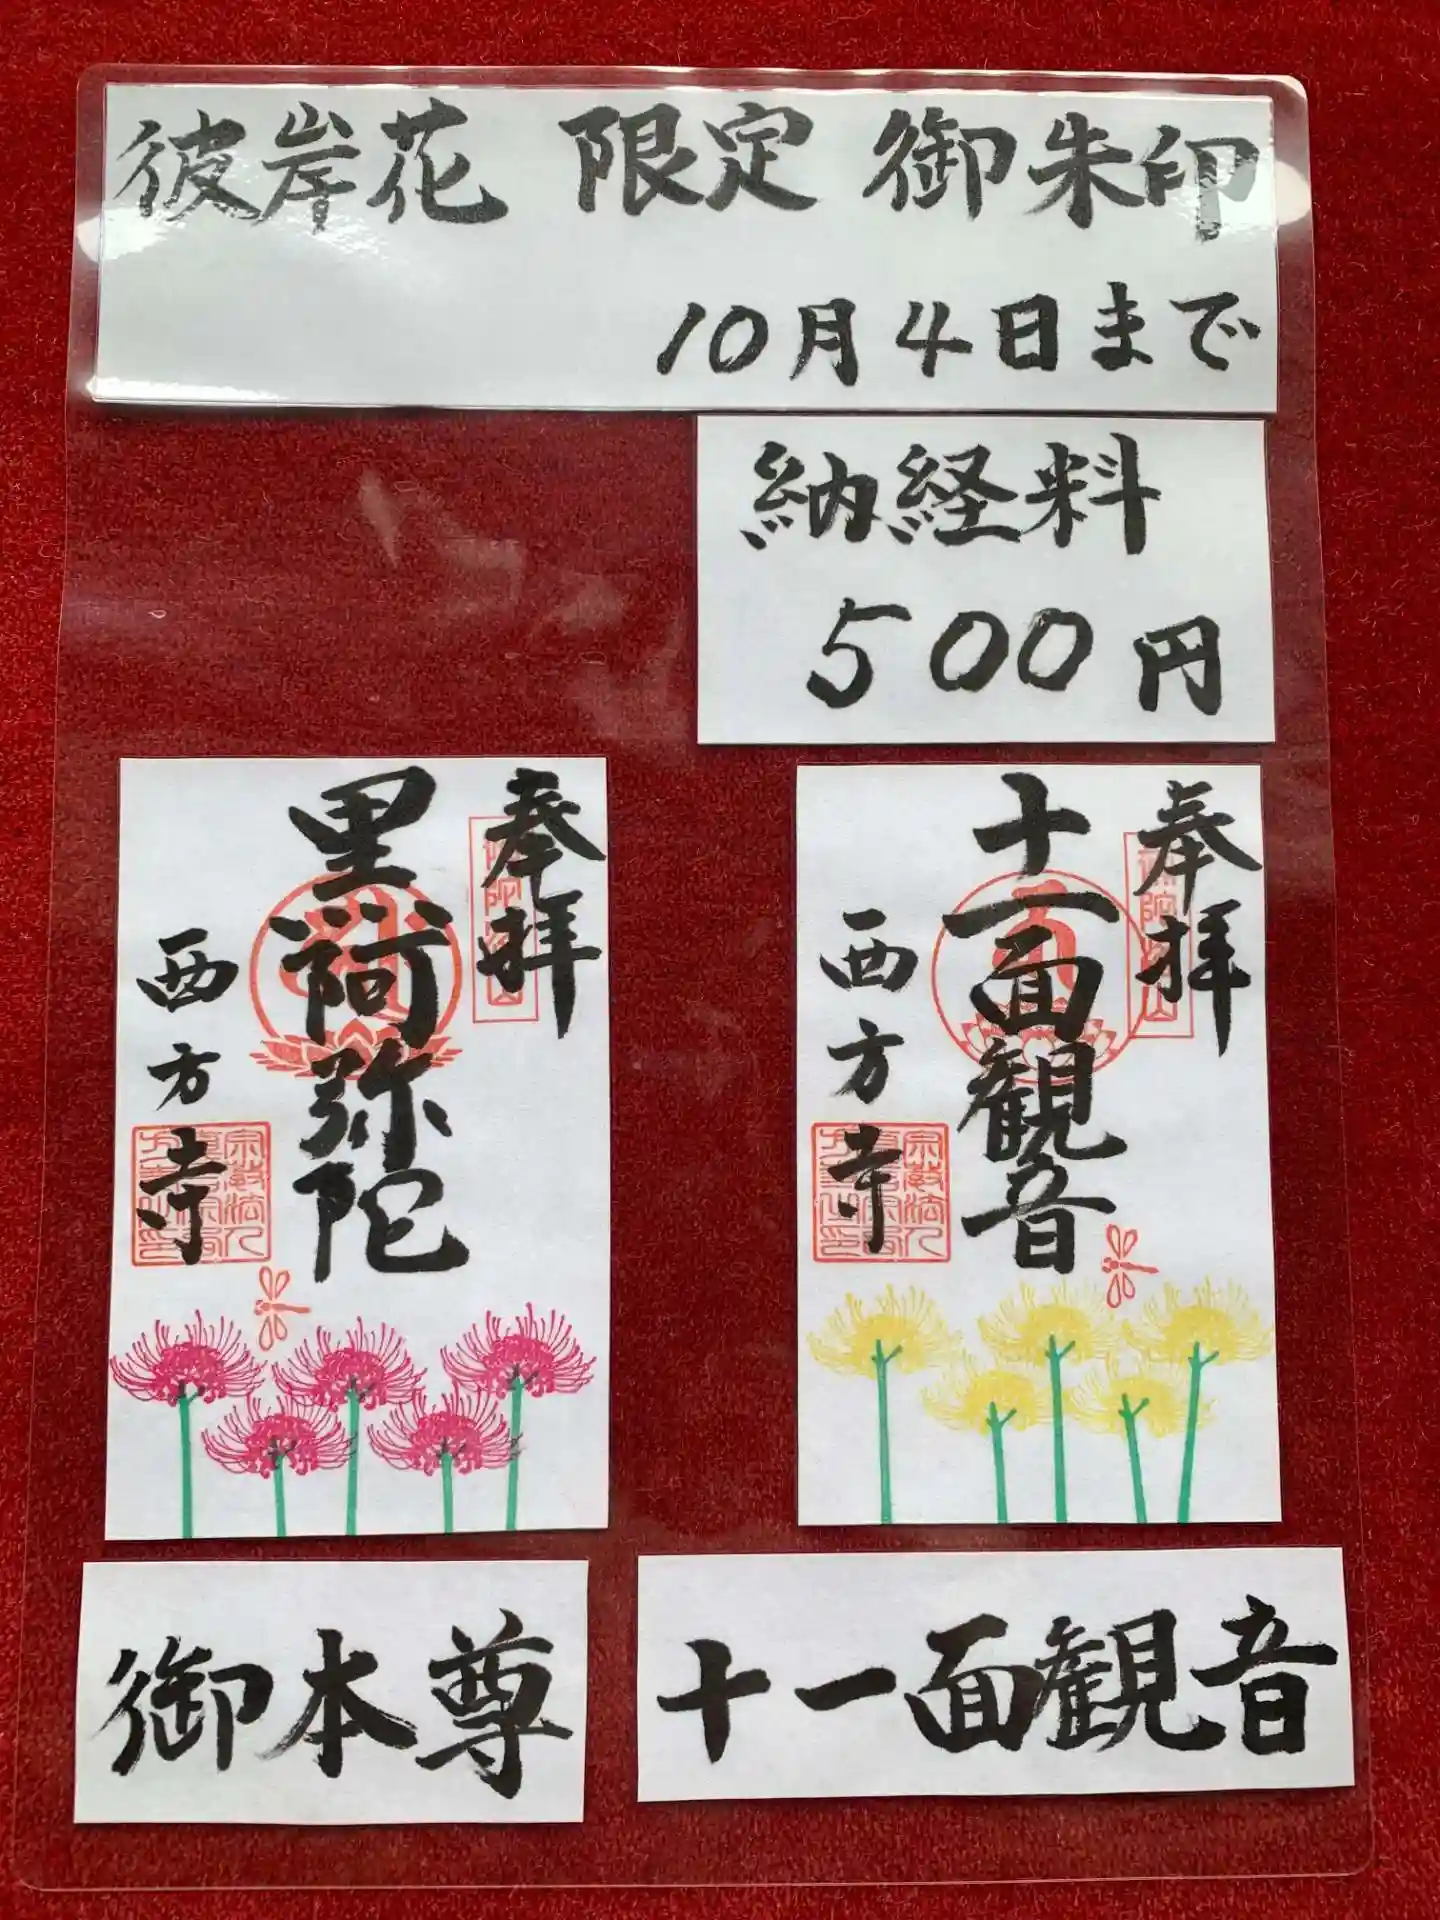 彼岸花 限定 御朱印
10月4日まで
納経料
500円
奉拝
黒谺弥陀
西方寺
奉拝
十一面観音
西方寺
御本尊
十一面観音